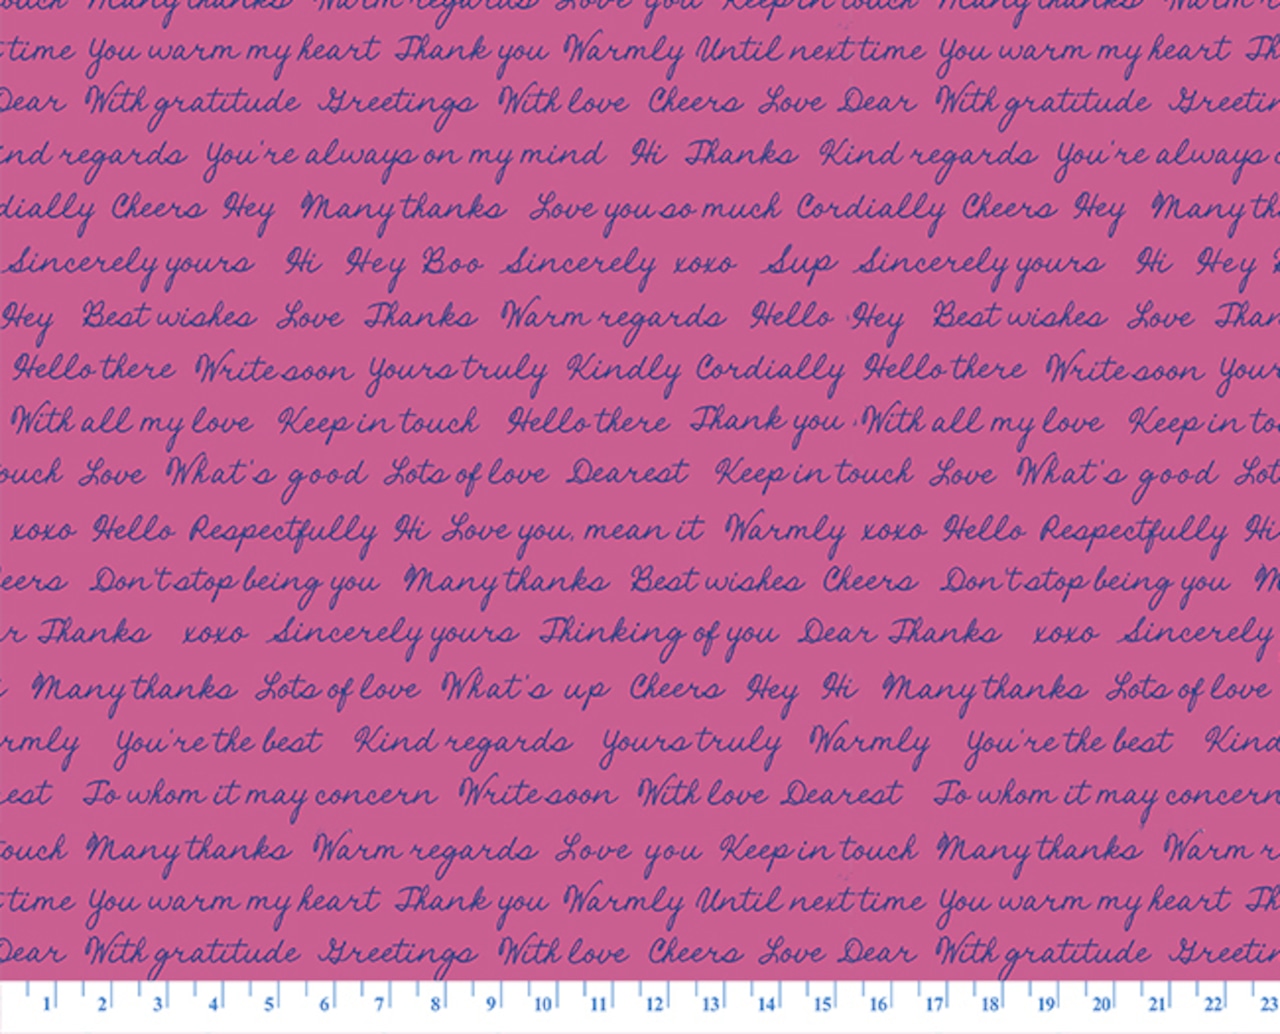 touch Many thanks Warm regards Love you Keep in touch Many thanks Warm r
time You warm my heart Thank you Warmly Until next time You warm my heart Th
Dear With gratitude Greetings With love Cheers Love Dear With gratitude Greetin
ind regards You're always on my mind Hi Thanks Kind regards You're always o
dially Cheers Hey Many thanks Love you so much Cordially Cheers Hey Many th
Sincerely yours Hi Hey Boo Sincerely xoxo Sup Sincerely yours Hi Hey B
Hey Best wishes Love Thanks Warm regards Hello Hey Best wishes Love Than
Hello there Write soon Yours truly Kindly Cordially Hello there Write soon Your
With all my love Keep in touch Hello there Thank you With all my love Keep in to
ouch Love What's good Lots of love Dearest Keep in touch Love What's good Lot
xoxo Hello Respectfully Hi Love you, mean it Warmly xoxo Hello Respectfully Hi
eers Don't stop being you Many thanks Best wishes Cheers Don't stop being you M
r Thanks xoxo Sincerely yours Thinking of you Dear Thanks xoxo Sincerely
Many thanks Lots of love What's up Cheers Hey Hi Many thanks Lots of love
rmly You're the best Kind regards Yours truly Warmly You're the best Kind
est To whom it may concern Write soon With love Dearest To whom it may concern
touch Many thanks Warm regards Love you Keep in touch Many thanks Warm r
time You warm my heart Thank you Warmly Until next time You warm my heart Th
Dear With gratitude Greetings With love Cheers Love Dear With gratitude Greetin
1 2 3 4 5 6 7 8 9 10 11 12 13 14 15 16 17 18 19 20 21 22 23